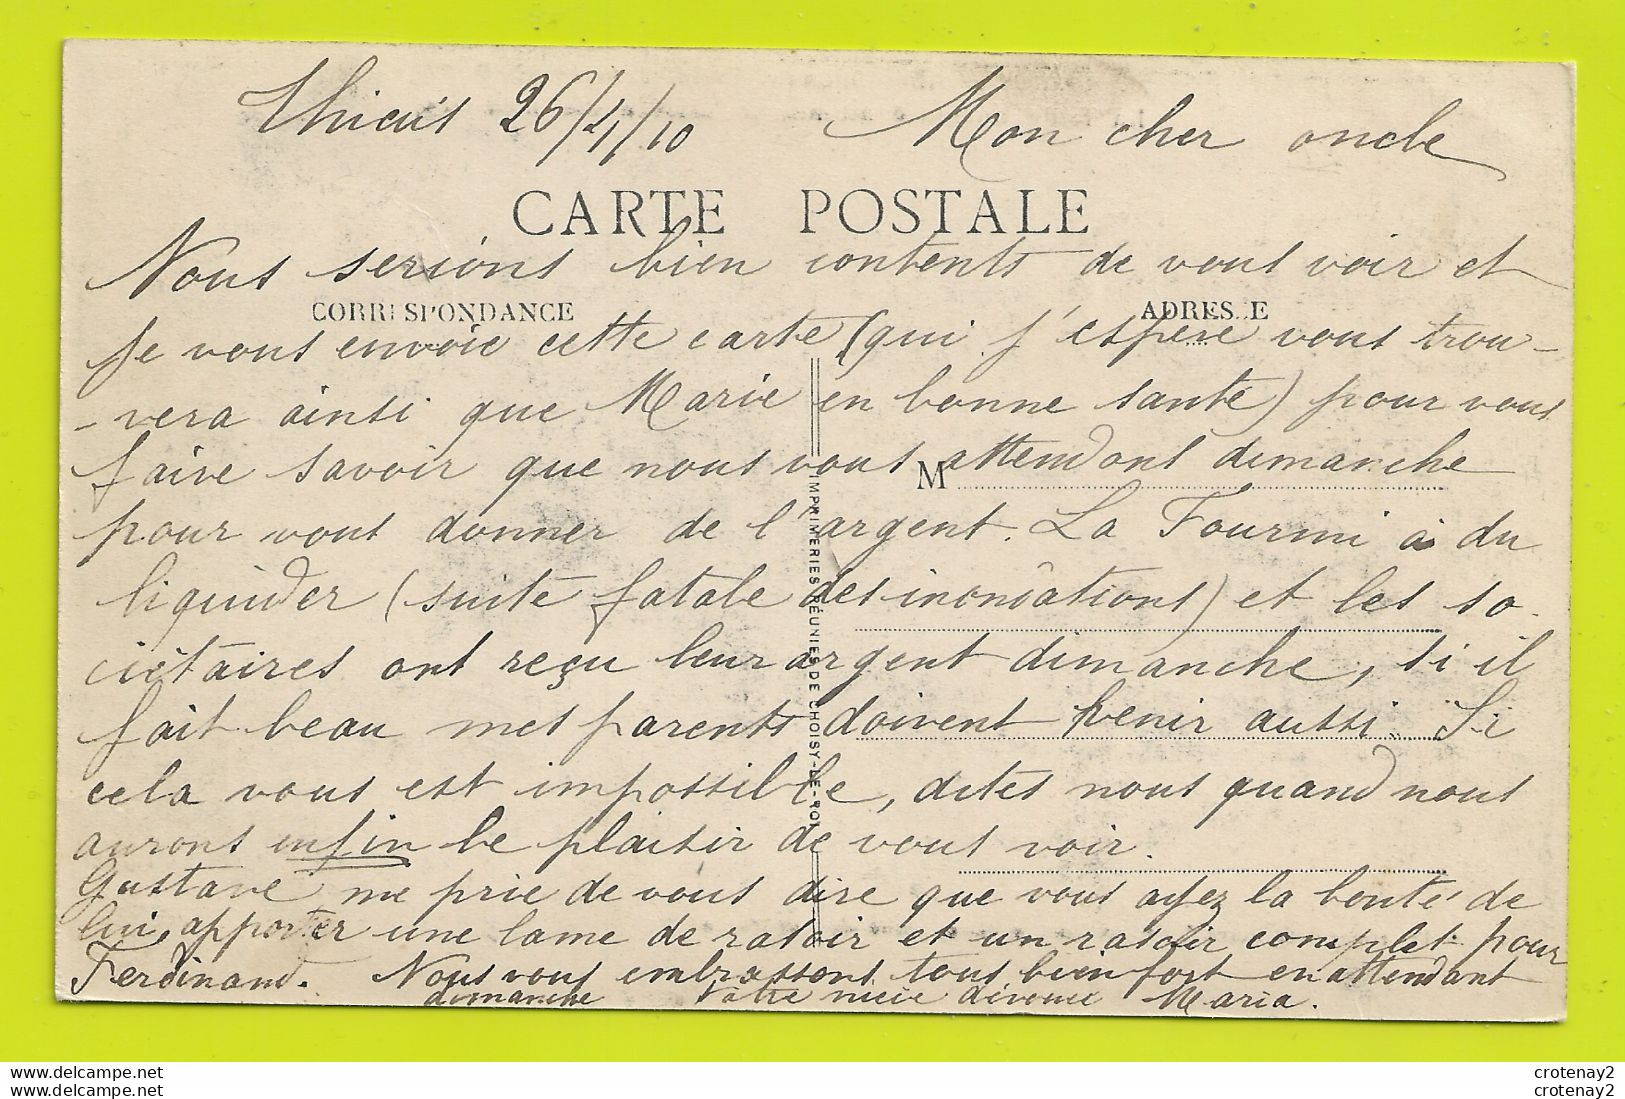 Thiais 26/4/10 Mon cher oncle
CARTE POSTALE
Nous serions bien contents de vous voir et
CORRESPONDANCE ADRESSE
je vous envoie cette carte (qui j'espère vous trou-
-vera ainsi que Marie en bonne santé) pour vous
faire savoir que nous vous attendons dimanche
M
pour vous donner de l'argent. La Fourmi à du
liquider (suite fatale des inondations) et les so-
ciétaires ont reçu leur argent dimanche, si il
fait beau mes parents doivent venir aussi. Si
cela vous est impossible, dites nous quand nous
aurons enfin le plaisir de vous voir.
Gustave me prie de vous dire que vous ayez la bonté de
lui apporter une lame de rasoir et un rasoir complet pour
Ferdinand. Nous vous embrassons tous bien fort en attendant
dimanche Votre nièce dévouée Maria.
IMPRIMERIES RÉUNIES DE CHOISY-LE-ROI
crotenay2
crotenay2